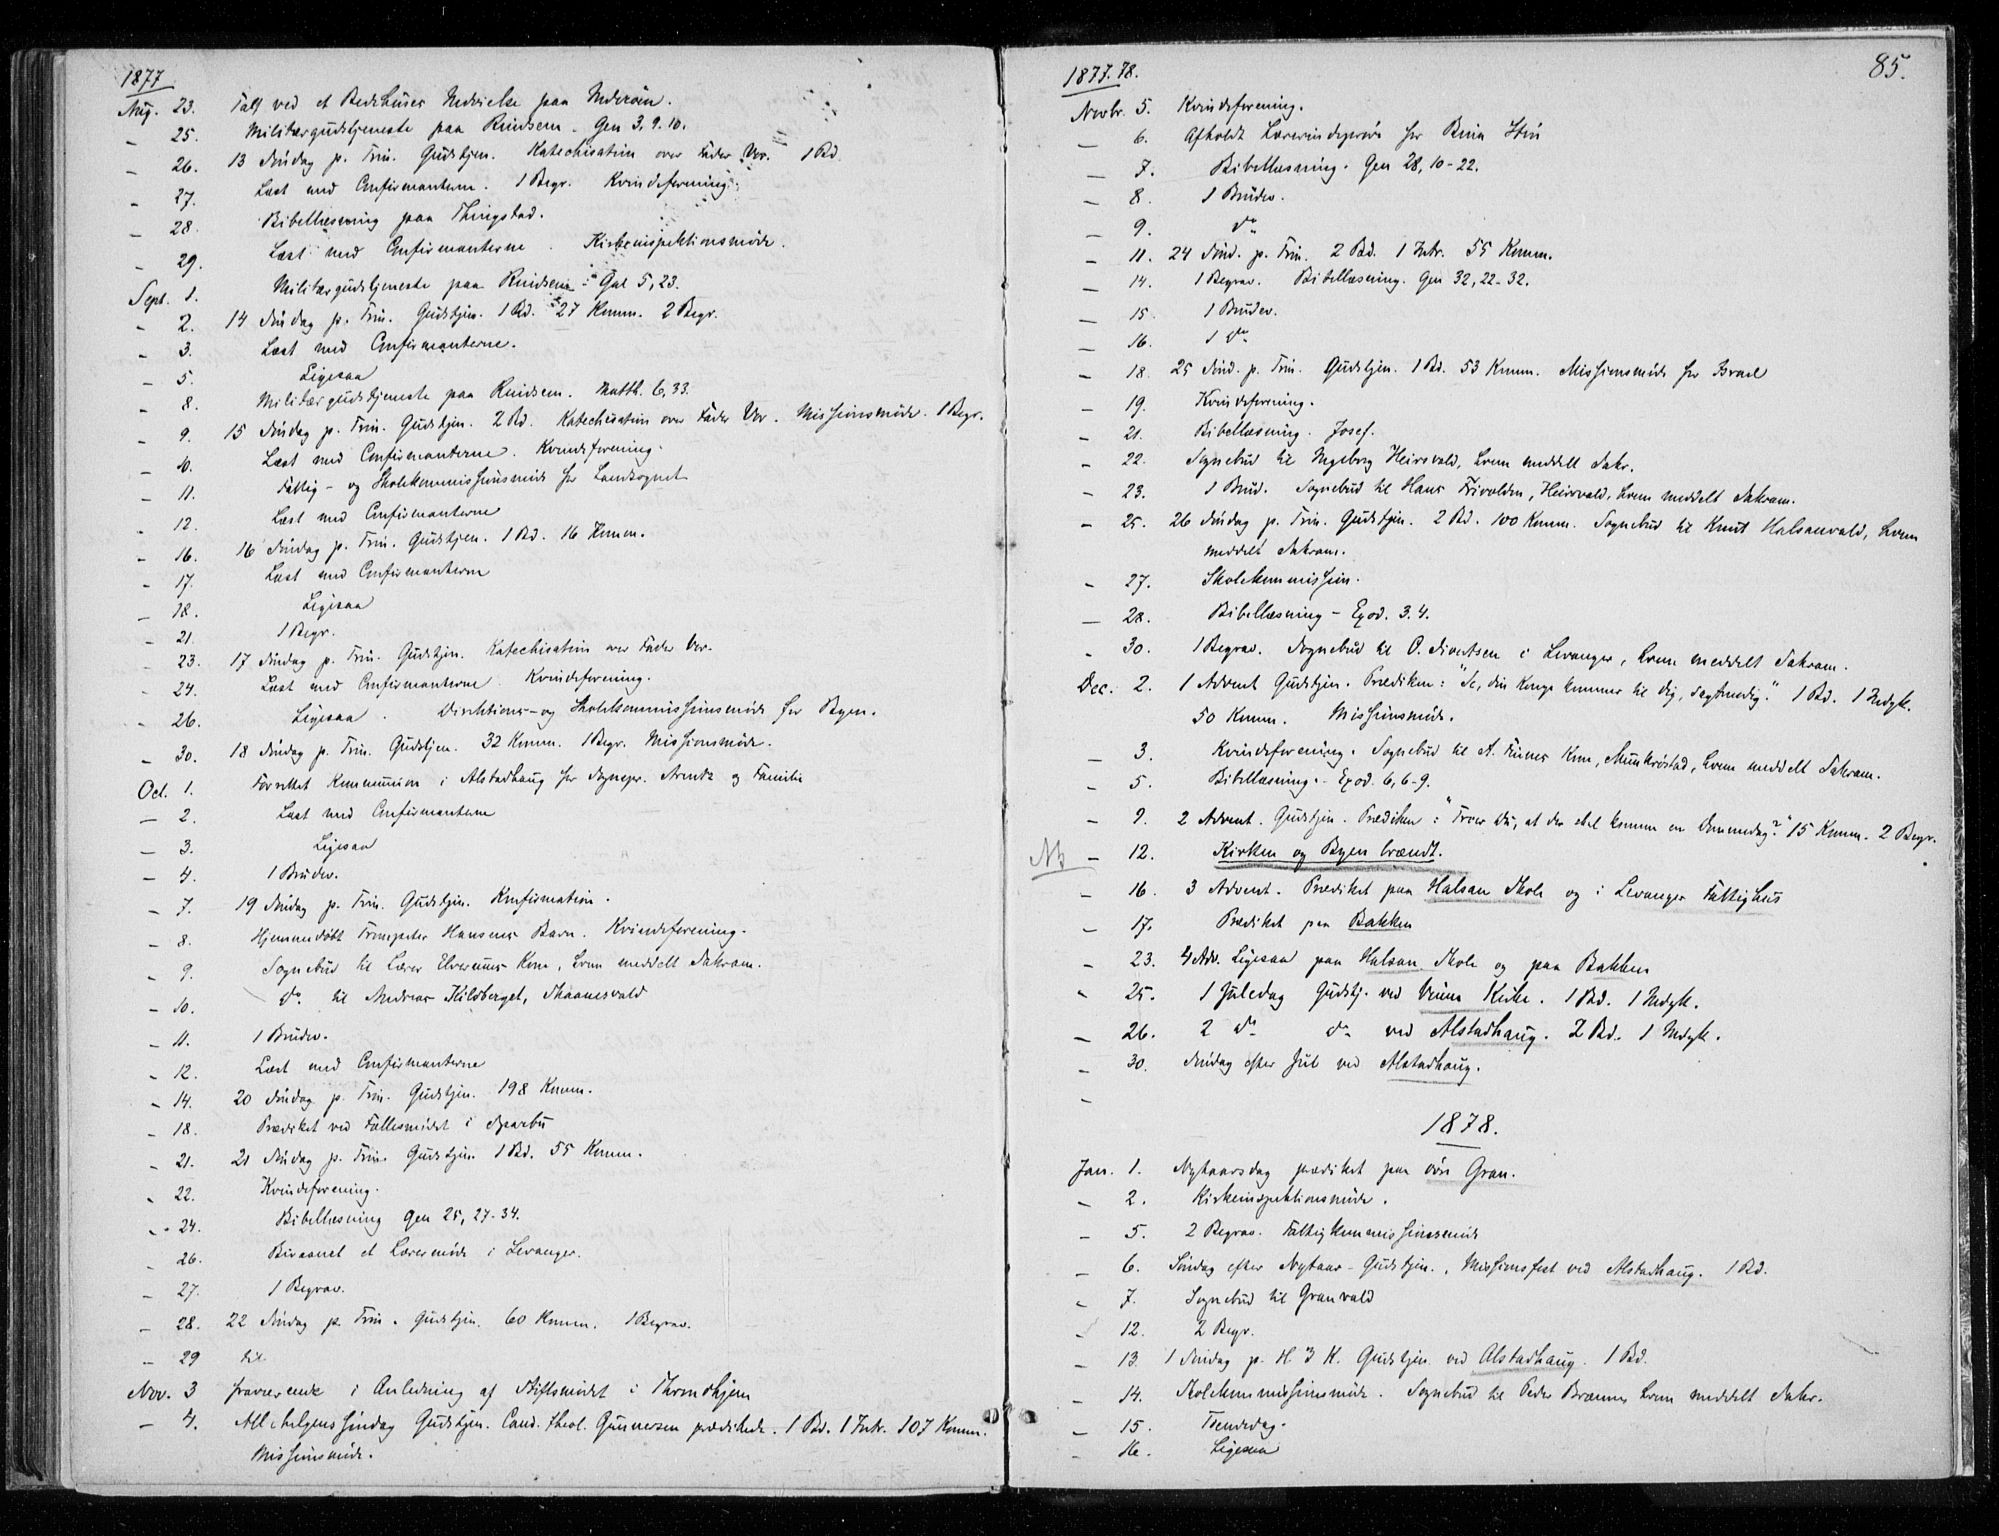 1877
Aug. 23. Talt ved et Bedehuses Indvielse paa Inderöen.
- 25. Militærgudstjeneste paa Rindsem. Gen 3, 9. 10.
- 26. 13 Söndag p. Trin. Gudstjen. Katechisation over Fader Vor. 1 Bd.
- 27. Læst med Confirmanterne. 1 Begr. Kvindeforening.
- 28. Bibellæsning paa Thingstad.
- 29. Læst med Confirmanterne. Kirkeinspektionsmöde.
Sept. 1. Militærgudstjeneste paa Rindsem. Gal 5, 23.
- 2. 14 Söndag p. Trin. Gudstjen. 1 Bd. 27 Komm. 2 Begr.
- 3. Læst med Confirmanterne.
- 5. Ligesaa
- 8. Militærgudstjeneste paa Rindsem. Matth. 6, 33.
- 9. 15 Söndag p. Trin. Gudstjen. 2 Bd. Katechisation over Fader Vor. Missionsmöde. 1 Begr.
- 10. Læst med Confirmanterne. Kvindeforening.
- 11. Fattig- og Skolekommissionsmöde for Landsognet
- 12. Læst med Confirmanterne
- 16. 16 Söndag p. Trin. Gudstjen. 1 Bd. 16 Komm.
- 17. Læst med Confirmanterne
- 18. Ligesaa
- 21. 1 Begr.
- 23. 17 Söndag p. Trin. Gudstjen. Katechisation over Fader Vor.
- 24. Læst med Confirmanterne. Kvindeforening.
- 26. Ligesaa. Direktions- og Skolekommissionsmöde for Byen.
- 30. 18 Söndag p. Trin. Gudstjen. 32 Komm. 1 Begr. Missionsmöde.
Oct. 1. Forrettet Kommunion i Alstadhaug for Sognepr. Arentz og Familie
- 2. Læst med Confirmanterne
- 3. Ligesaa
- 4. 1 Brudev.
- 7. 19 Söndag p. Trin. Gudstjen. Konfirmation.
- 8. Hjemmedöbt Trompeter Hansens Barn. Kvindeforening.
- 9. Sognebud til Lærer Kone, hvem meddelt Sakram.
- 10. do til Andreas Kildberget,
- 11. 1 Brudev.
- 12. Læst med Confirmanterne
- 14. 20 Söndag p. Trin. Gudstjen. 198 Komm.
- 18. Prædiket ved Fællesmödet i Sparbu
- 21. 21 Söndag p. Trin. Gudstjen. 1 Bd. 55 Komm.
- 22. Kvindeforening.
- 24. Bibellæsning Gen 25, 27-34.
- 26. Bivaanet et Lærermöde i Levanger.
- 27. 1 Begrav.
- 28. 22 Söndag p. Trin. Gudstjen. 60 Komm. 1 Begrav.
- 29 til
Nov. 3 fraværende i Anledning af Stiftsmödet i Throndhjem
- 4. Allehelgenssöndag Gudstjen. Cand. theol. Gunnersen prædikede. 1 Bd. 1 Intr. 107 Komm.
Missionsmöde.
1877. 78. 85.
Novbr. 5. Kvindeforening.
- 6. Afholdt Lærerindepröve for
- 7. Bibellæsning. Gen 28, 10-22.
- 8. 1 Brudev.
- 9. do
- 11. 24 Sönd. p. Trin. 2 Bd. 1 Intr. 55 Komm.
- 14. 1 Begrav. Bibellæsning. Gen 32, 22-32.
- 15. 1 Brudev.
- 16. 1 do
- 18. 25 Sönd. p. Trin. Gudstjen. 1 Bd. 53 Komm. Missionsmöde for Israel
- 19. Kvindeforening.
- 21. Bibellæsning. Josef.
- 22. Sognebud til Ingeborg Heirsvald, hvem meddelt Sakr.
- 23. 1 Brud. Sognebud til Hans, Heirsvald, hvem meddelt Sakram.
- 25. 26 Söndag p. Trin. Gudstjen. 2 Bd. 100 Komm. Sognebud til Knut Halsanvald, hvem
meddelt Sakram.
- 27. Skolekommission.
- 28. Bibellæsning - Exod. 3. 4.
- 30. 1 Begrav. Sognebud til O. Sivertsen i Levanger, hvem meddelt Sakram.
Dec. 2. 1 Advent Gudstjen. Prædiken: "Se, din Konge kommer til dig, sagtmodig." 1 Bd. 1 Indgk.
50 Komm. Missionsmöde.
- 3. Kvindeforening. Sognebud til A. Kone, Munkröstad, hvem meddelt Sakram.
- 5. Bibellæsning. Exod. 6, 6-9.
- 9. 2 Advent. Gudstjen. Prædiken: "Troer Du, at der skal komme en Dommedag?" 15 Komm. 2 Begr.
Nb - 12. Kirken og Byen brændt.
- 16. 3 Advent. Prædiket paa Halsan Skole og i Levanger Fattighus
- 17. Prædiket paa Bakken
- 23. 4 Adv. Ligesaa paa Halsan Skole og paa Bakken
- 25. 1 Juledag Gudstj. ved Vinne Kirke. 1 Bd. 1 Indgk.
- 26. 2 do do ved Alstadhaug. 2 Bd. 1 Indgk.
- 30. Söndag efter Jul ved Alstadhaug.
-
1878.
Jan. 1. Nytaarsdag prædiket paa övre Gran.
- 2. Kirkeinspektionsmöde.
- 5. 2 Begrav. Fattigkommissionsmöde
- 6. Söndag efter Nytaar - Gudstjen., Missionsfest ved Alstadhaug. 1 Bd.
- 7. Sognebud til Granvald
- 12. 2 Begr.
- 13. 1 Söndag p. H 3 K. Gudstjen. ved Alstadhaug. 1 Bd.
- 14. Skolekommissionsmöde. Sognebud til Peder hvem meddelt Sakr.
- 15. Tiendedag.
- 16. Ligesaa